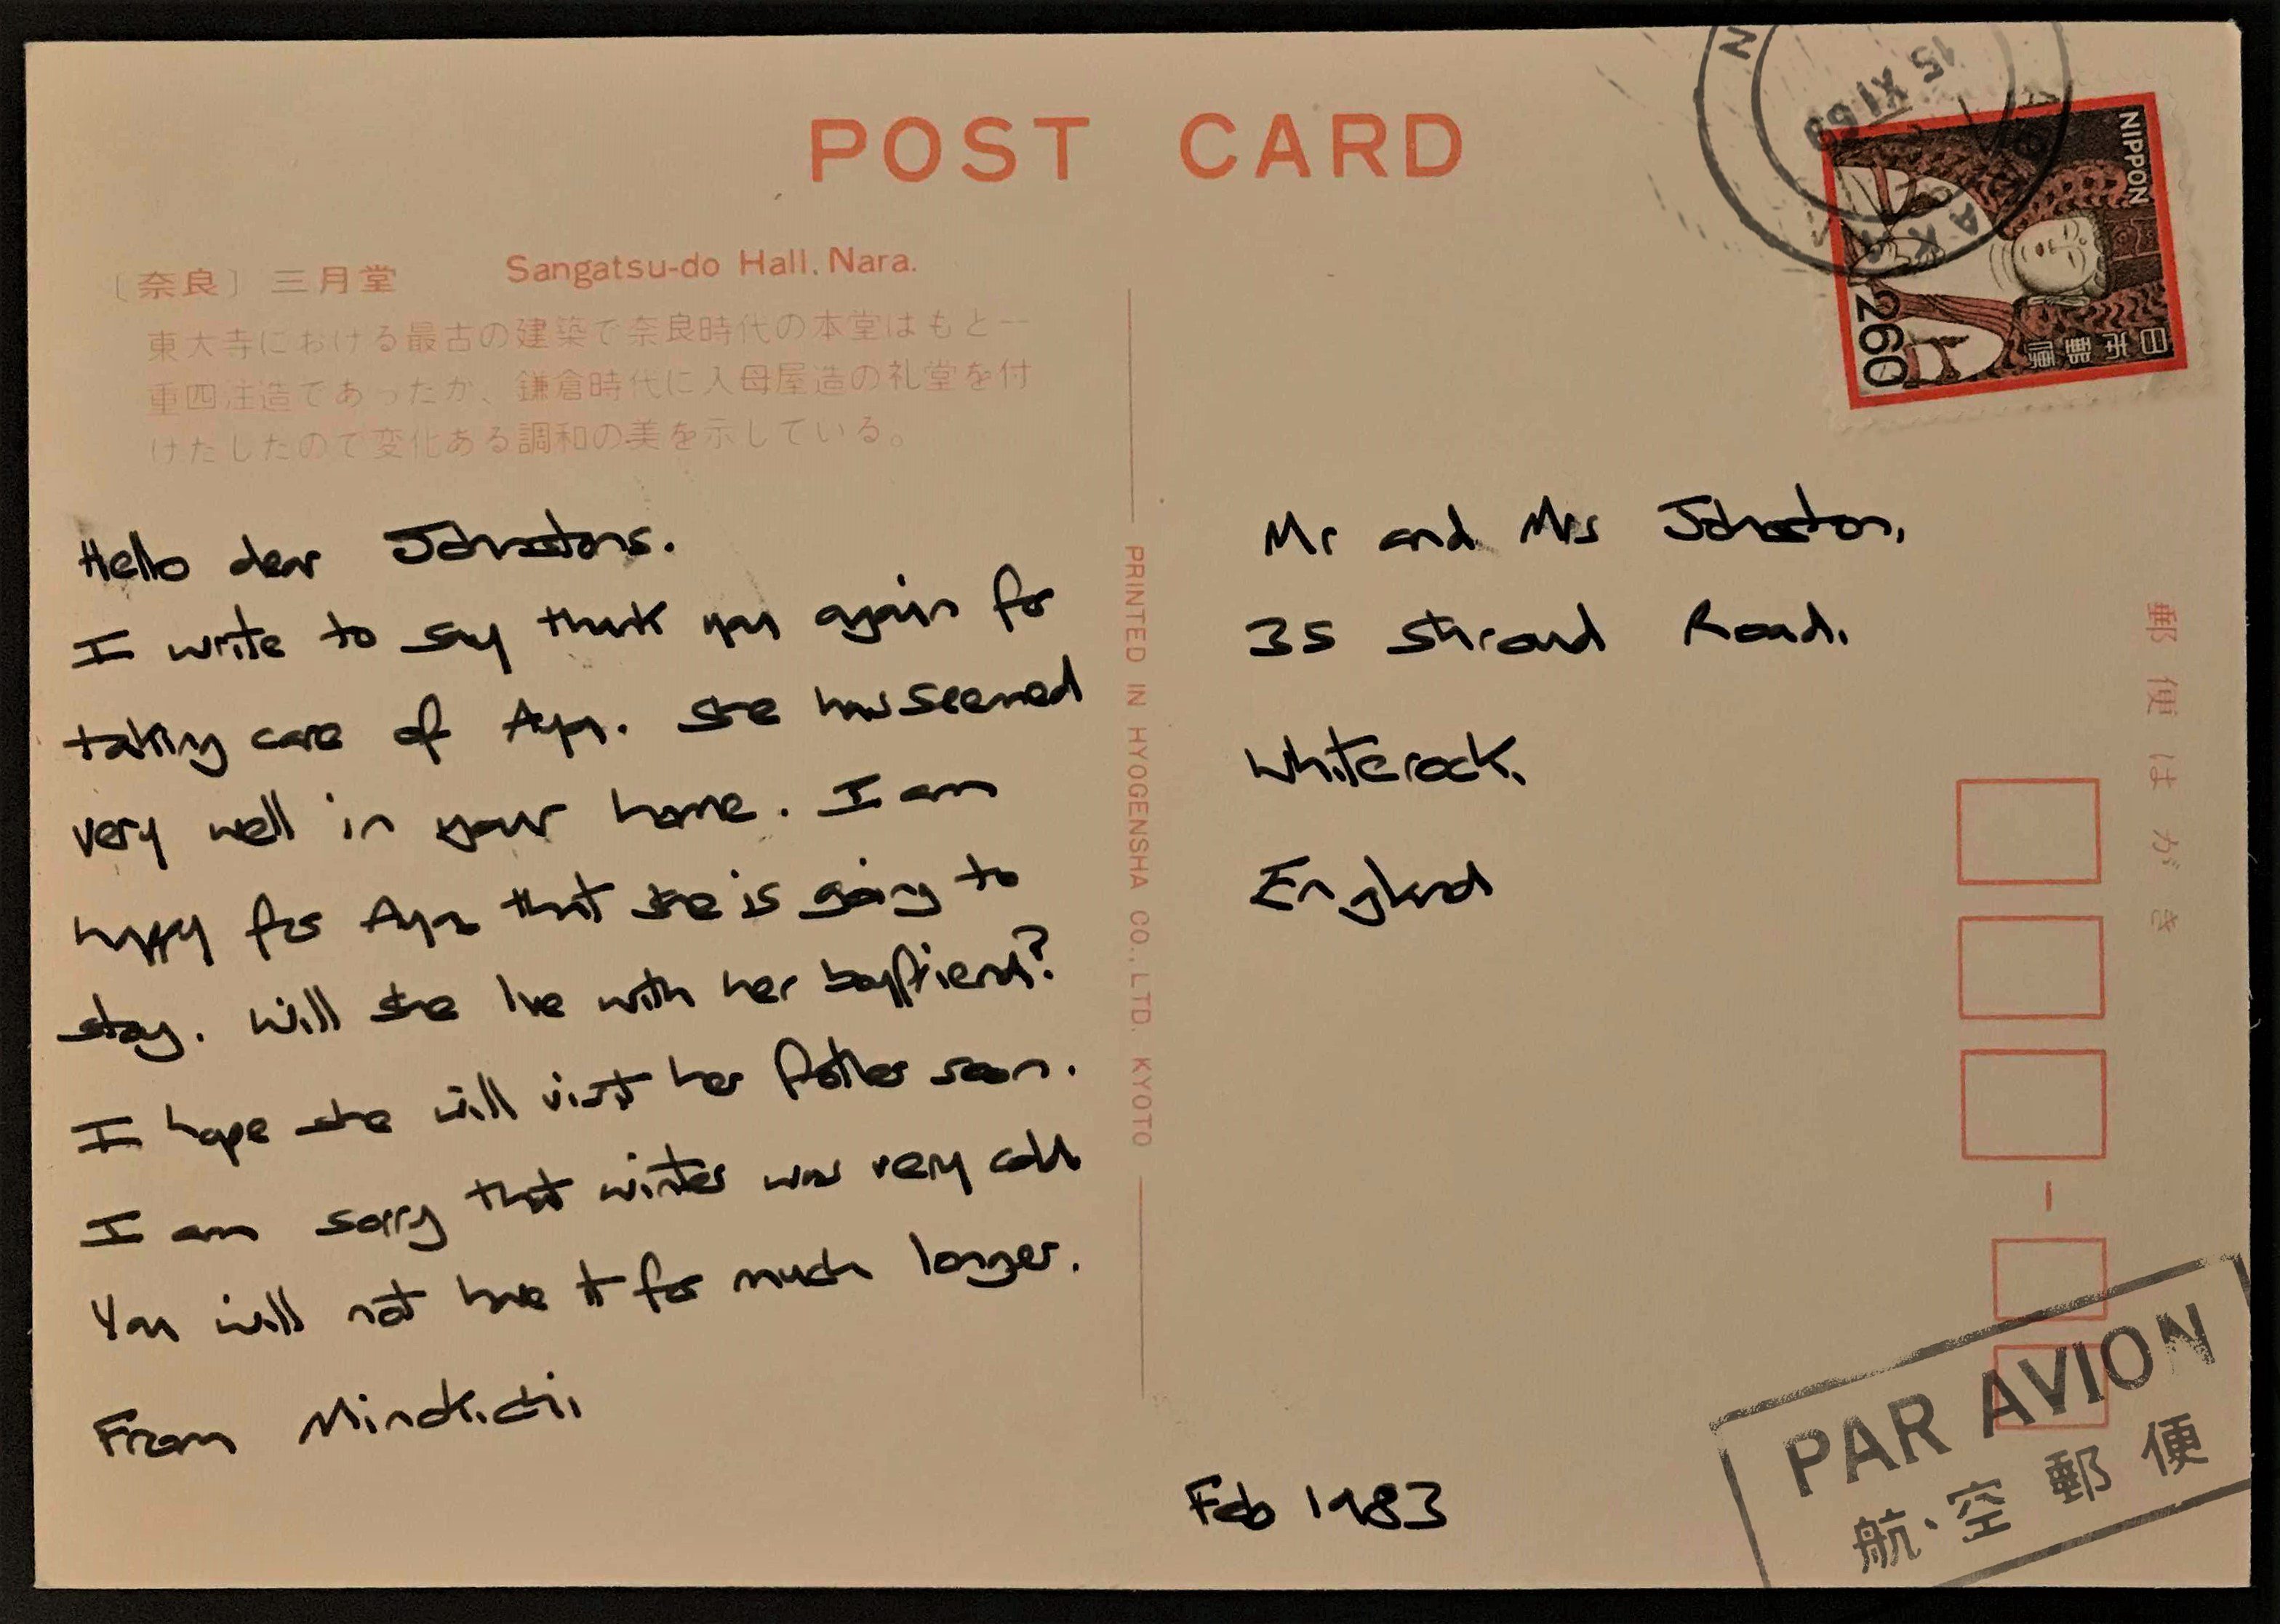 POST CARD
〔奈良〕三月堂 Sangatsu-do Hall. Nara.
東大寺における最古の建築で奈良時代の本堂はもと一
重四注造であったが、鎌倉時代に入母屋造の礼堂を付
けたしたので変化ある調和の美を示している。
Hello dear Johnstons.
I write to say thank you again for
taking care of Aya. She has seemed
very well in your home. I am
happy for Aya that she is going to
stay. Will she live with her boyfriend?
I hope she will visit her father soon.
I am sorry that winter was very cold
You will not have it for much longer.
From Minokichi
PRINTED IN HYOGENSHA CO., LTD. KYOTO
15 XI 69
NIPPON
日本郵便
260
Mr and Mrs Johnston,
35 Stroud Road.
Whiterock.
England
郵便はがき
Feb 1983
PAR AVION
航空郵便